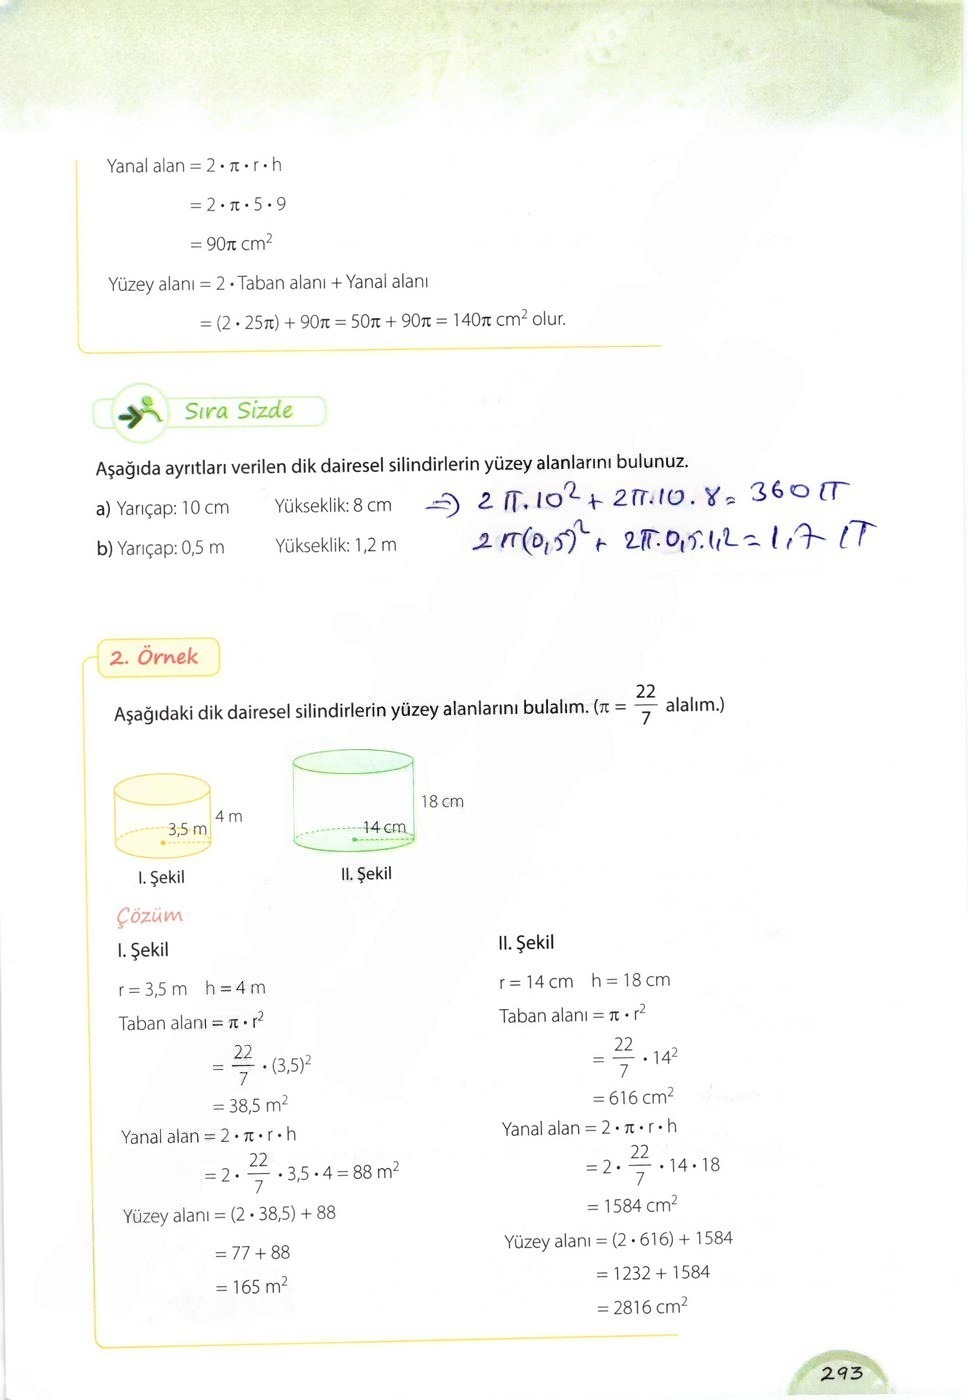 Yanal alan = 2 • π • r • h
= 2 • π • 5 • 9
= 90π cm²
Yüzey alanı = 2 • Taban alanı + Yanal alanı
= (2 • 25π) + 90π = 50π + 90π = 140π cm² olur.
Sıra Sizde
Aşağıda ayrıtları verilen dik dairesel silindirlerin yüzey alanlarını bulunuz.
a) Yarıçap: 10 cm Yükseklik: 8 cm ⇒ 2π.10² + 2π.10.8 = 360π
b) Yarıçap: 0,5 m Yükseklik: 1,2 m 2π(0,5)² + 2π.0,5.1,2 = 1,7π
2. Örnek
Aşağıdaki dik dairesel silindirlerin yüzey alanlarını bulalım. (π = 22/7 alalım.)
18 cm
4 m
3,5 m
14 cm
I. Şekil
II. Şekil
Çözüm
I. Şekil
r = 3,5 m h = 4 m
Taban alanı = π • r²
= 22/7 • (3,5)²
= 38,5 m²
Yanal alan = 2 • π • r • h
= 2 • 22/7 • 3,5 • 4 = 88 m²
Yüzey alanı = (2 • 38,5) + 88
= 77 + 88
= 165 m²
II. Şekil
r = 14 cm h = 18 cm
Taban alanı = π • r²
= 22/7 • 14²
= 616 cm²
Yanal alan = 2 • π • r • h
= 2 • 22/7 • 14 • 18
= 1584 cm²
Yüzey alanı = (2 • 616) + 1584
= 1232 + 1584
= 2816 cm²
293